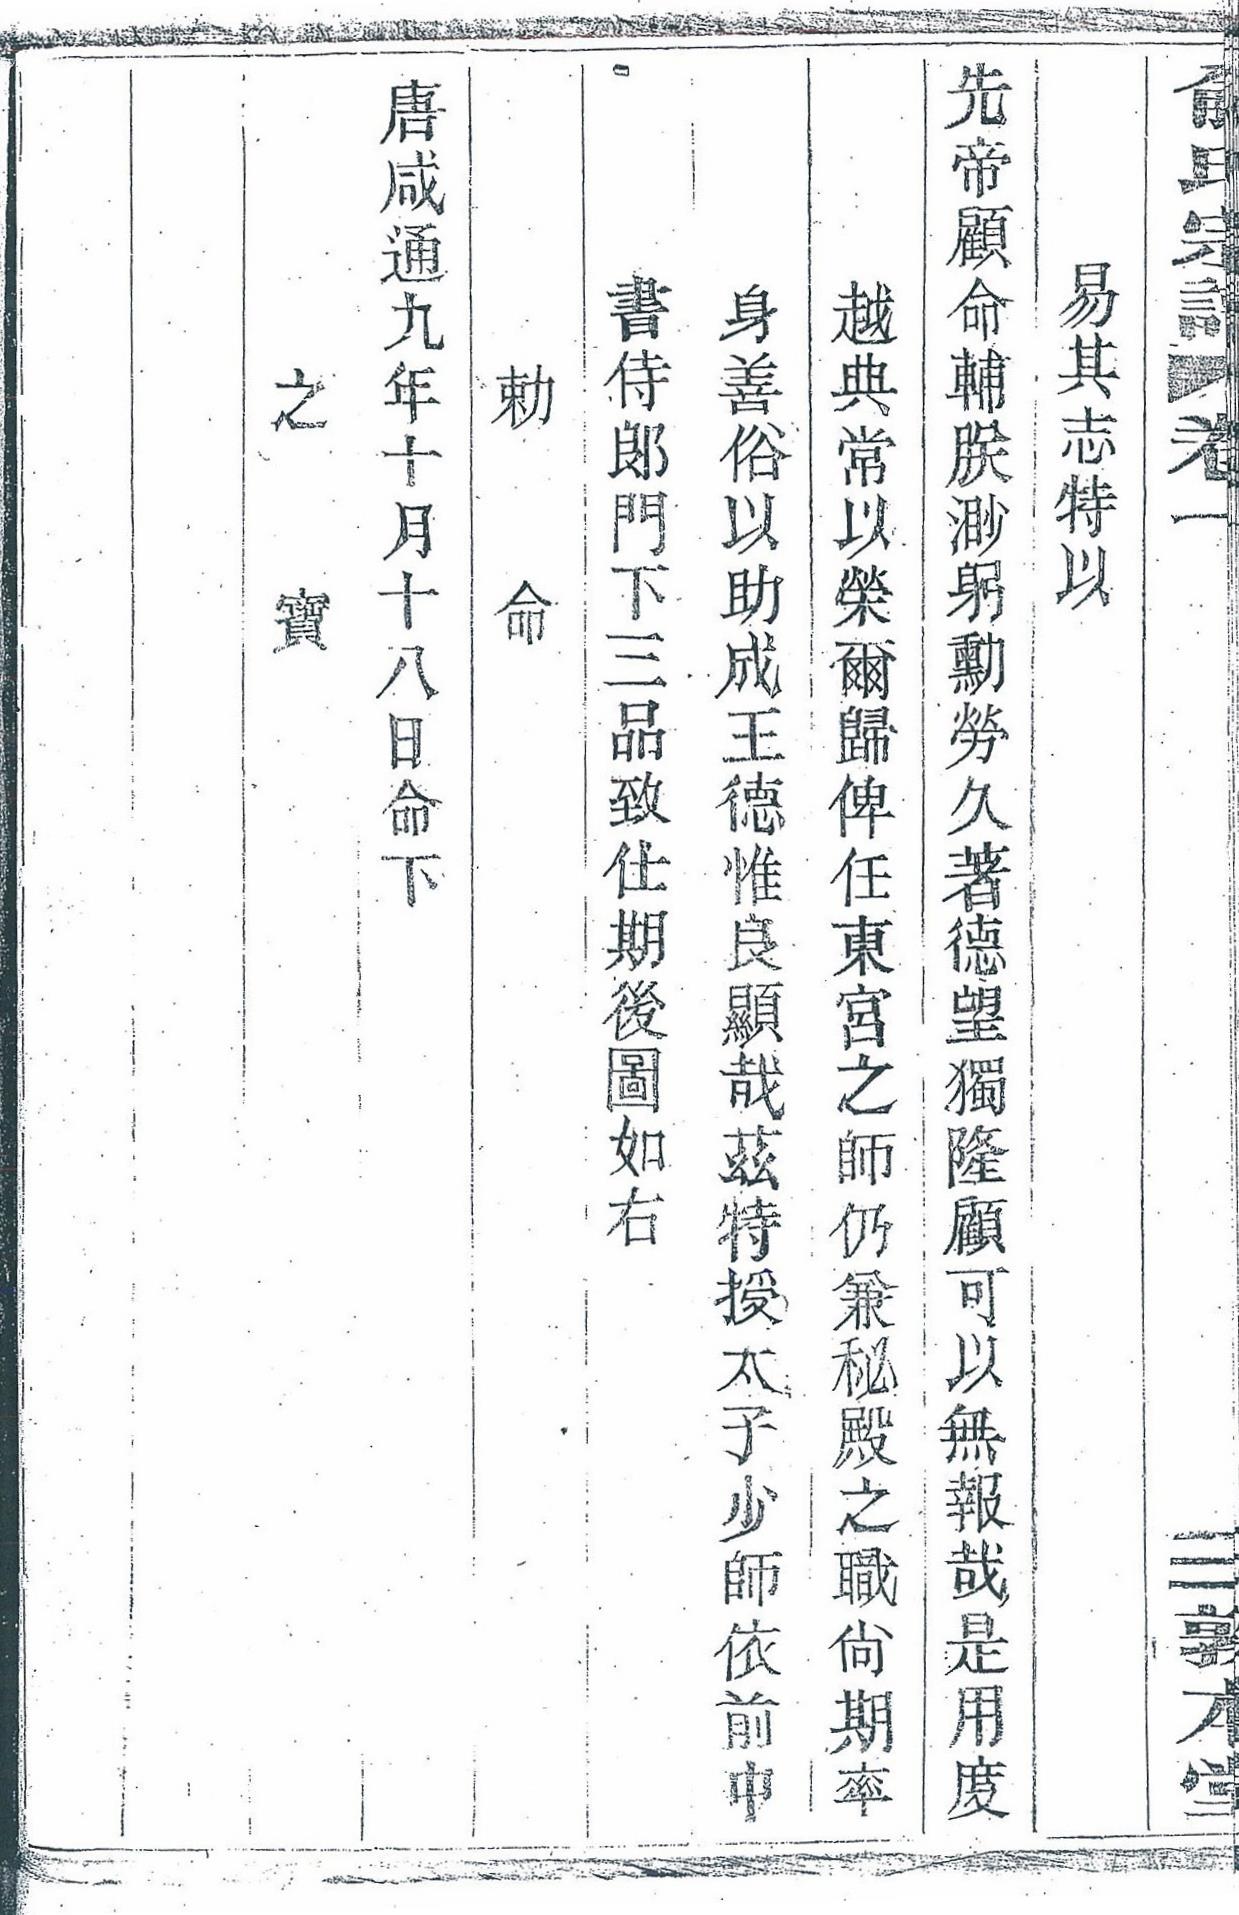 俞氏宗譜 卷一 三 敦本堂
易其志特以
先帝顧命輔朕渺躬勳勞久著德望獨隆顧可以無報哉是用度
越典常以榮爾歸俾任東宮之師仍兼秘殿之職尙期率
身善俗以助成王德惟良顯哉茲特授太子少師依前中
書侍郎門下三品致仕期後圖如右
勅命
唐咸通九年十月十八日命下
之寶